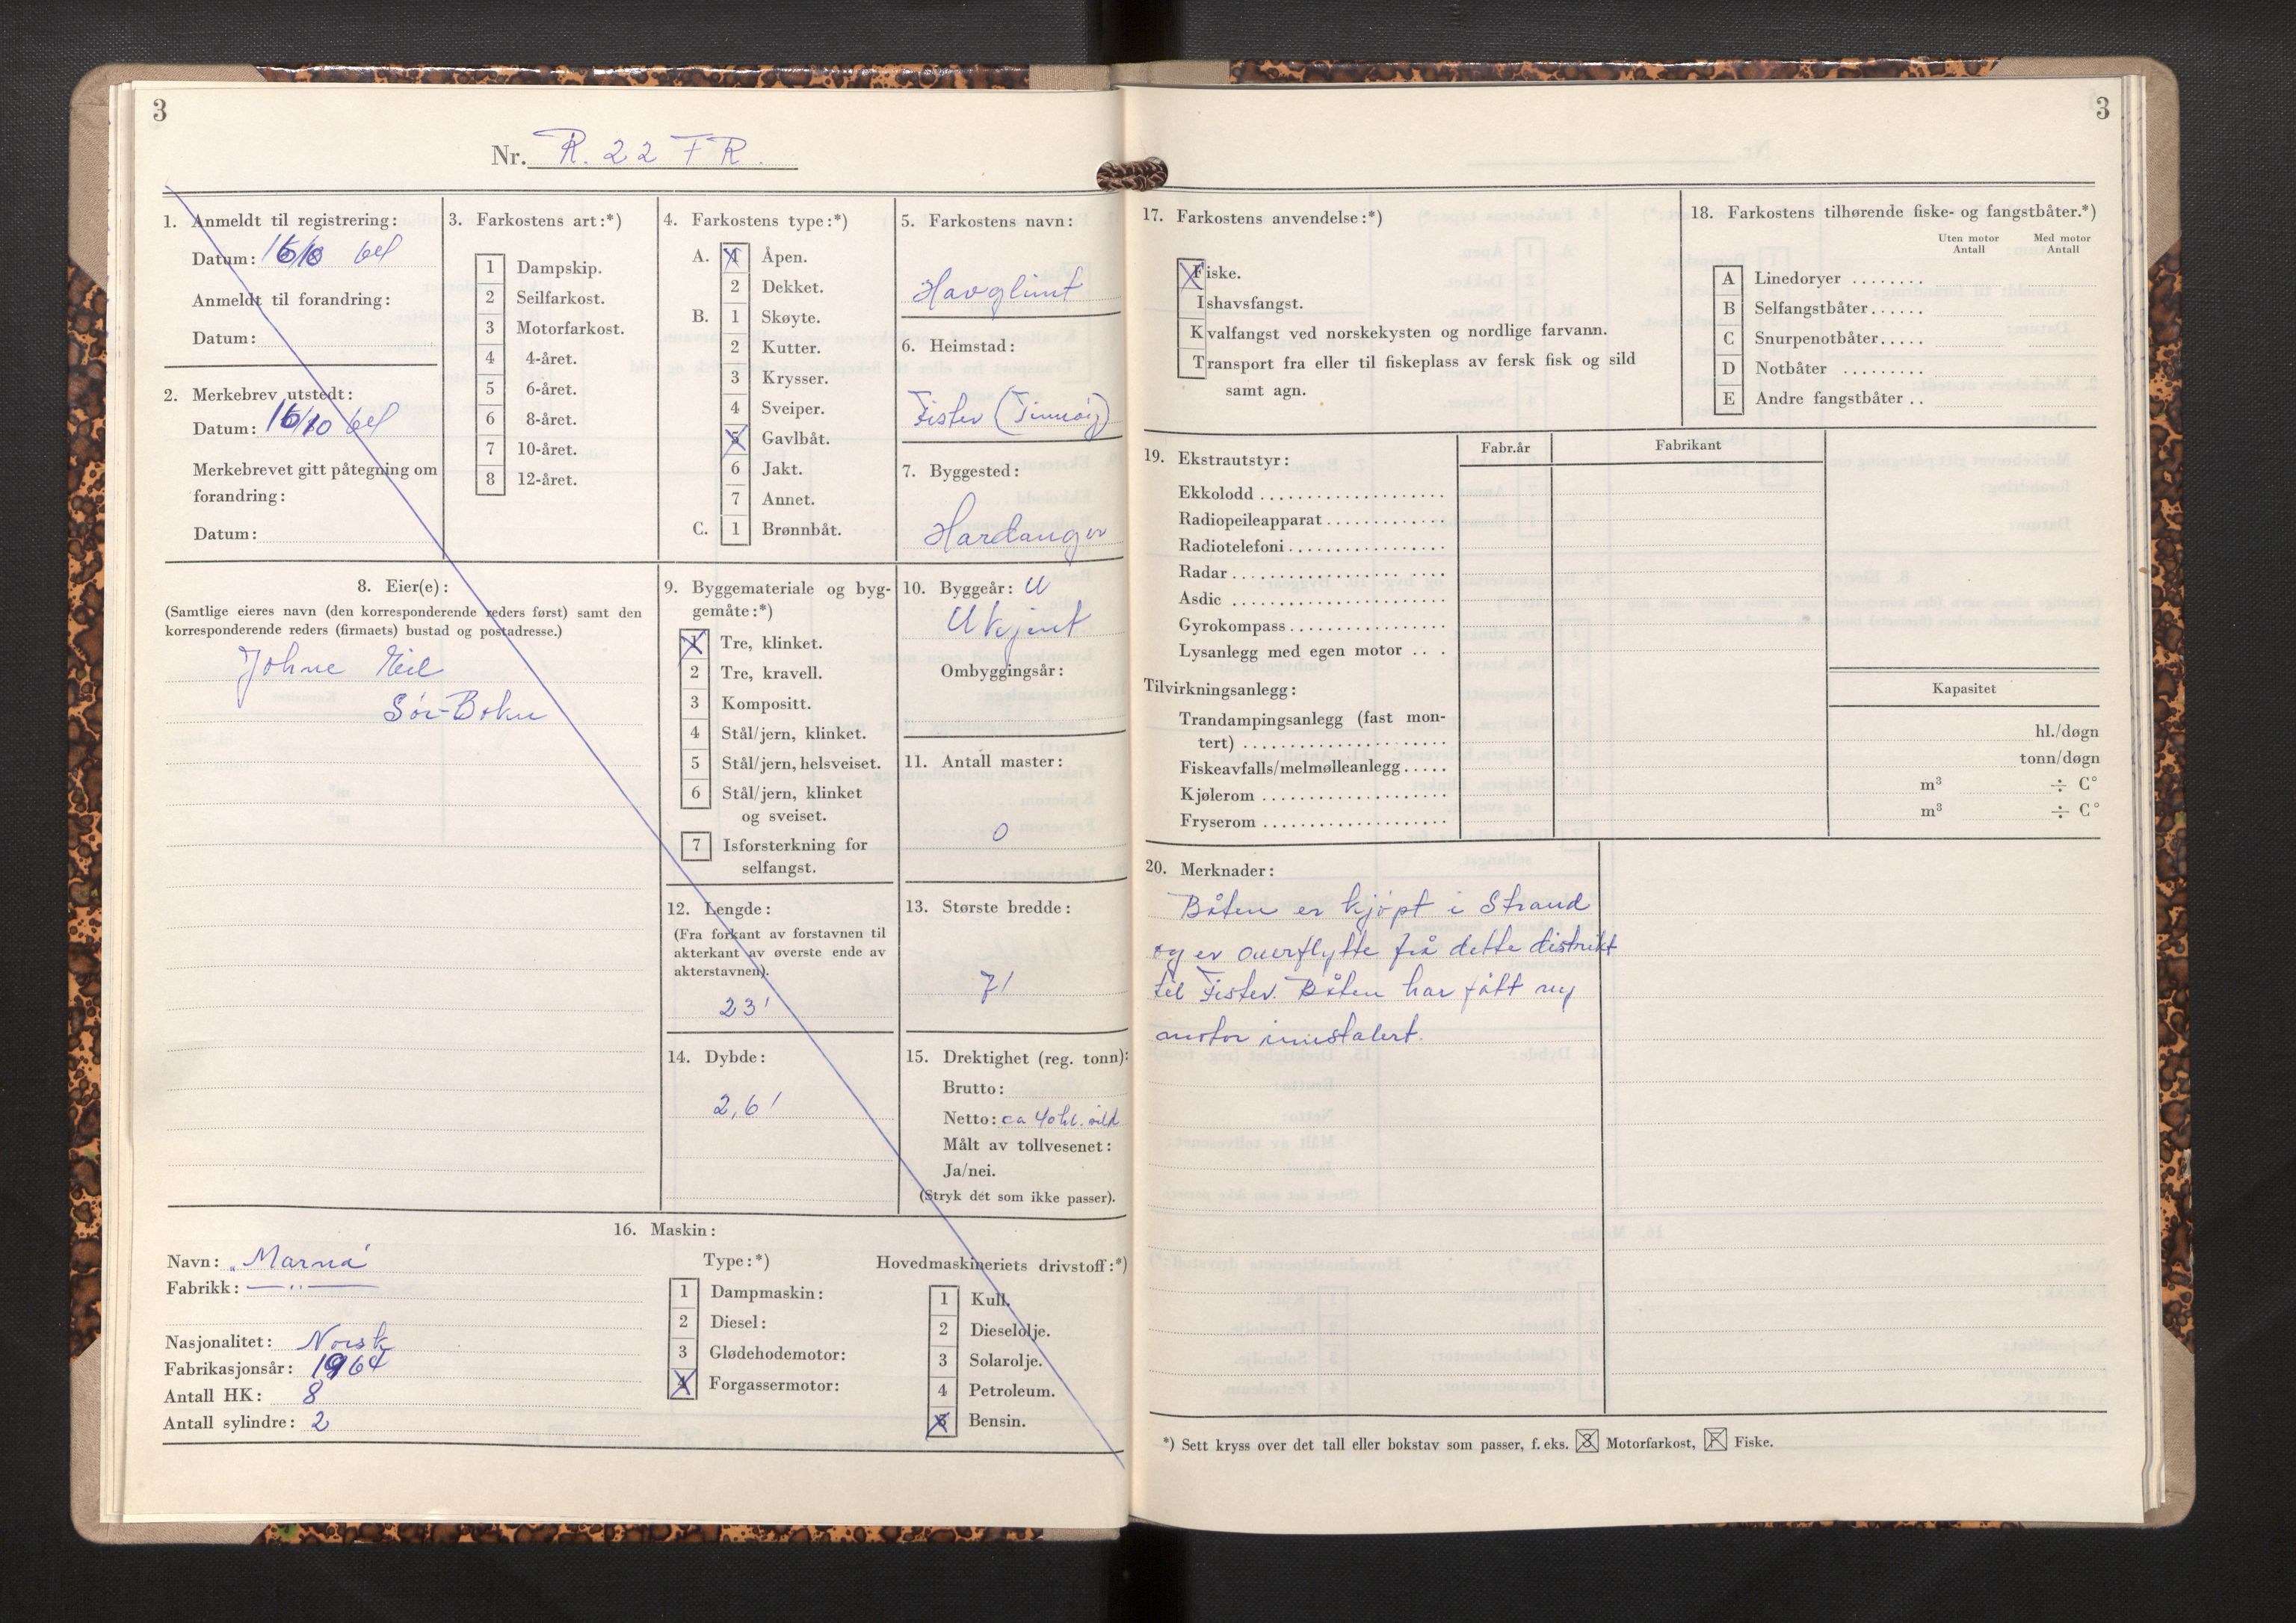 3
Nr. R. 22 FR.
1. Anmeldt til registrering:
Datum: 16/10 64
Anmeldt til forandring:
Datum:
2. Merkebrev utstedt:
Datum: 16/10 64
Merkebrevet gitt påtegning om
forandring:
Datum:
3. Farkostens art:*)
1 Dampskip.
2 Seilfarkost.
3 Motorfarkost.
4 4-året.
5 6-året.
6 8-året.
7 10-året.
8 12-året.
4. Farkostens type:*)
A. 1 Åpen.
2 Dekket.
B. 1 Skøyte.
2 Kutter.
3 Krysser.
4 Sveiper.
5 Gavlbåt.
6 Jakt.
7 Annet.
C. 1 Brønnbåt.
5. Farkostens navn:
Havglimt
6. Heimstad:
Fister
7. Byggested:
Hardanger
8. Eier(e):
(Samtlige eieres navn (den korresponderende reders først) samt den
korresponderende reders (firmaets) bustad og postadresse.)
Johne
Sør-Bokn
9. Byggemateriale og byg-
gemåte:*)
1 Tre, klinket.
2 Tre, kravell.
3 Kompositt.
4 Stål/jern, klinket.
5 Stål/jern, helsveiset.
6 Stål/jern, klinket
og sveiset.
7 Isforsterkning for
selfangst.
10. Byggeår: U
Ukjent
Ombyggingsår:
11. Antall master:
0
12. Lengde:
(Fra forkant av forstavnen til
akterkant av øverste ende av
akterstavnen).
23'
13. Største bredde:
7'
14. Dybde:
2,6'
15. Drektighet (reg. tonn):
Brutto:
Netto: ca 40 hl. sild
Målt av tollvesenet:
Ja/nei.
(Stryk det som ikke passer).
16. Maskin:
Navn: „Marna"
Fabrikk: — " —
Nasjonalitet: Norsk
Fabrikasjonsår: 1964
Antall HK: 8
Antall sylindre: 2
Type:*)
1 Dampmaskin:
2 Diesel:
3 Glødehodemotor:
4 Forgassermotor:
Hovedmaskineriets drivstoff:*)
1 Kull.
2 Dieselolje.
3 Solarolje.
4 Petroleum.
5 Bensin.
3
17. Farkostens anvendelse:*)
Fiske.
Ishavsfangst.
Kvalfangst ved norskekysten og nordlige farvann.
Transport fra eller til fiskeplass av fersk fisk og sild
samt agn.
18. Farkostens tilhørende fiske- og fangstbåter.*)
Uten motor Antall
Med motor Antall
A Linedoryer ........
B Selfangstbåter......
C Snurpenotbåter.....
D Notbåter .........
E Andre fangstbåter ..
19. Ekstrautstyr:
Fabr.år
Fabrikant
Ekkolodd ....................
Radiopeileapparat.............
Radiotelefoni.................
Radar.......................
Asdic .......................
Gyrokompass.................
Lysanlegg med egen motor ...
Tilvirkningsanlegg:
Kapasitet
Trandampingsanlegg (fast mon-
tert) ...................... hl./døgn
Fiskeavfalls/melmølleanlegg..... tonn/døgn
Kjølerom .................... m³ ÷ C°
Fryserom .................... m³ ÷ C°
20. Merknader:
Båten er kjøpt i Strand
og er overflytte frå dette distrikt
til Fister. Båten har fått ny
motor innstalert.
*) Sett kryss over det tall eller bokstav som passer, f. eks. 3 Motorfarkost, F Fiske.